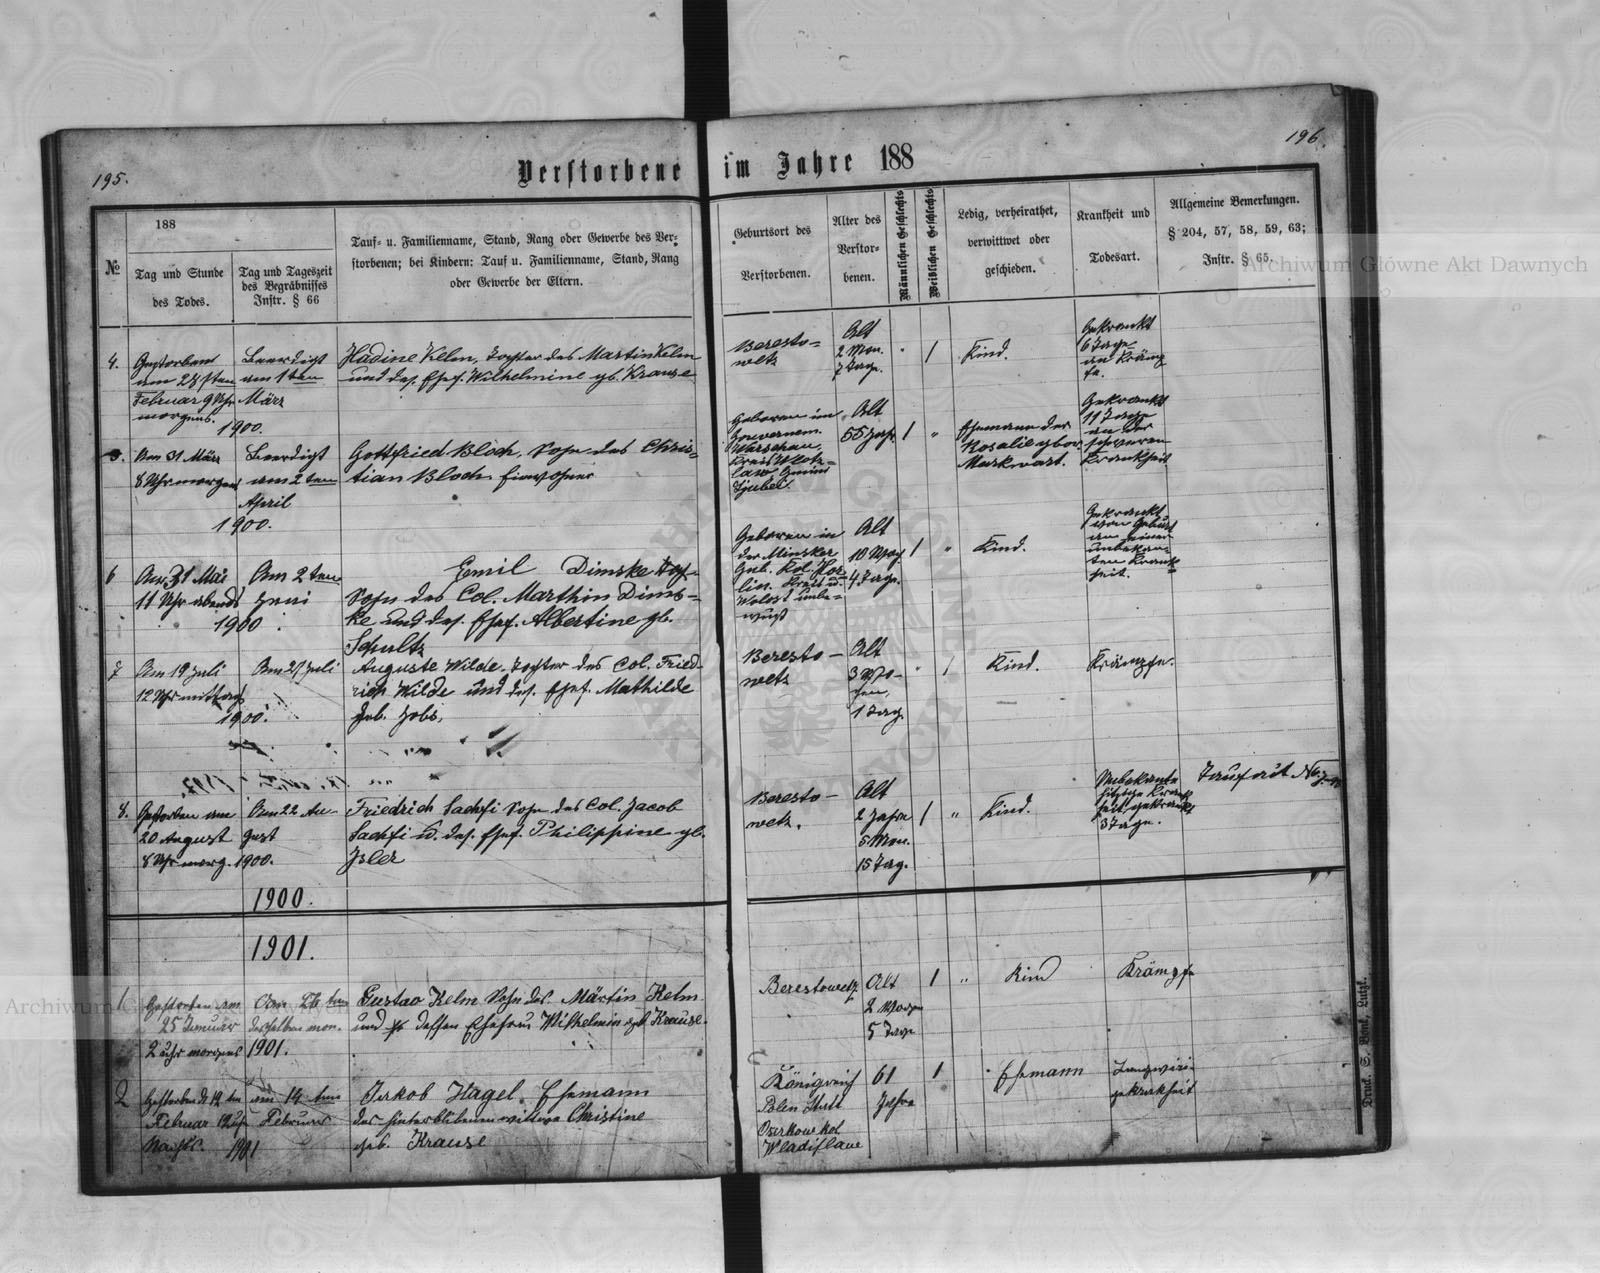 195.
196.
Verstorbene im Jahre 188
№
188
Tag und Stunde
des Todes.
Tag und Tageszeit
des Begräbnisses
Instr. § 66
Tauf- u. Familienname, Stand, Rang oder Gewerbe des Ver-
storbenen; bei Kindern: Tauf u. Familienname, Stand, Rang
oder Gewerbe der Eltern.
Geburtsort des
Verstorbenen.
Alter des
Verstor-
benen.
Männlichen Geschlechts
Weiblichen Geschlechts
Ledig, verheirathet,
verwittwet oder
geschieden.
Krankheit und
Todesart.
Allgemeine Bemerkungen.
§ 204, 57, 58, 59, 63;
Instr. § 65.
4.
Gestorben
am 28sten
Februar 9 Uhr
morgens.
Beerdigt
am 1ten
März
1900.
Nadine Kelm, Tochter des Martin Kelm
und des. Ehef. Wilhelmine gb. Krause
Beresto-
wetz
Alt
2 Mon.
7 Tage.
1
Kind.
Gekrankt
6 Tage
an Kräm
fe.
5.
Am 31 März
8 Uhr morgens
Beerdigt
am 2ten
April
1900.
Gottfried Bloch, Sohn des Chris-
tian Bloch Einwohner
Geboren im
Gouvernem.
Warschau
Kreis Wlotz-
law Gmind
Alt
55 Jahr
1
"
Ehemann der
Rosalie gbor
Markwart.
Gekrankt
11 Tage
an der
schweren
Krankheit
6
Am 31 Mai
11 Uhr abends
Am 2ten
Juni
1900
Emil Dimske
Sohn des Col. Marthin Dims-
ke und des. Ehef. Albertine gb.
Schultz
Geboren in
der Minsker
Gub. Kol. Hor-
lin. Kreis u.
Wolost unbe-
wust
Alt
10 Woch.
4 Tage.
1
"
Kind.
Gekrankt
von Geburt
an seiner
unbekan-
ten Krank-
heit.
7
Am 19 Juli
12 Uhr mittag
Am 21 Juli
1900.
Auguste Wilde, Tochter des Col. Fried-
rich Wilde und des. Ehef. Mathilde
geb. Jobs,
Beresto-
wetz
Alt
3 Wo-
chen,
1 Tag.
"
1
Kind.
Krämpfe.
8.
Gestorben am
20 August
8 Uhr morg.
Am 22 Au-
gust
1900.
Friedrich Sachsi Sohn des Col. Jacob
Sachsi u. des. Ehef. Philippine gb.
Isler
Beresto-
wetz.
Alt
2 Jahre
5 Mon.
15 Tag.
1
"
Kind.
Unbekante
hitzige Krank
heit gekrankt
3 Tage.
1900.
1901.
1
Gestorben am
25 Januar
2 uhr morgens
Am 26ten
desselben mon.
1901.
Gustav Kelm Sohn des Märtin Kelm
und dessen Ehefrau Wilhelmin geb Krause.
Berestowetz.
Alt
2 Woche
5 Tage
1
"
Kind
Krämpfe
2
Gestorben d 12ten
Februar 12 uhr
Nachts.
am 14ten
Februar
1901
Jakob Hagel Ehemann
der hinterblibenen wittwe Christine
geb. Krause
Königreich
Polen Stadt
Oserkow kol.
Wladislaw
61
Jahre
1
"
Ehemann
Langwiri-
ge krankheit
Druck S. Bonk, Lutzk.
Archiwum Główne Akt Dawnych